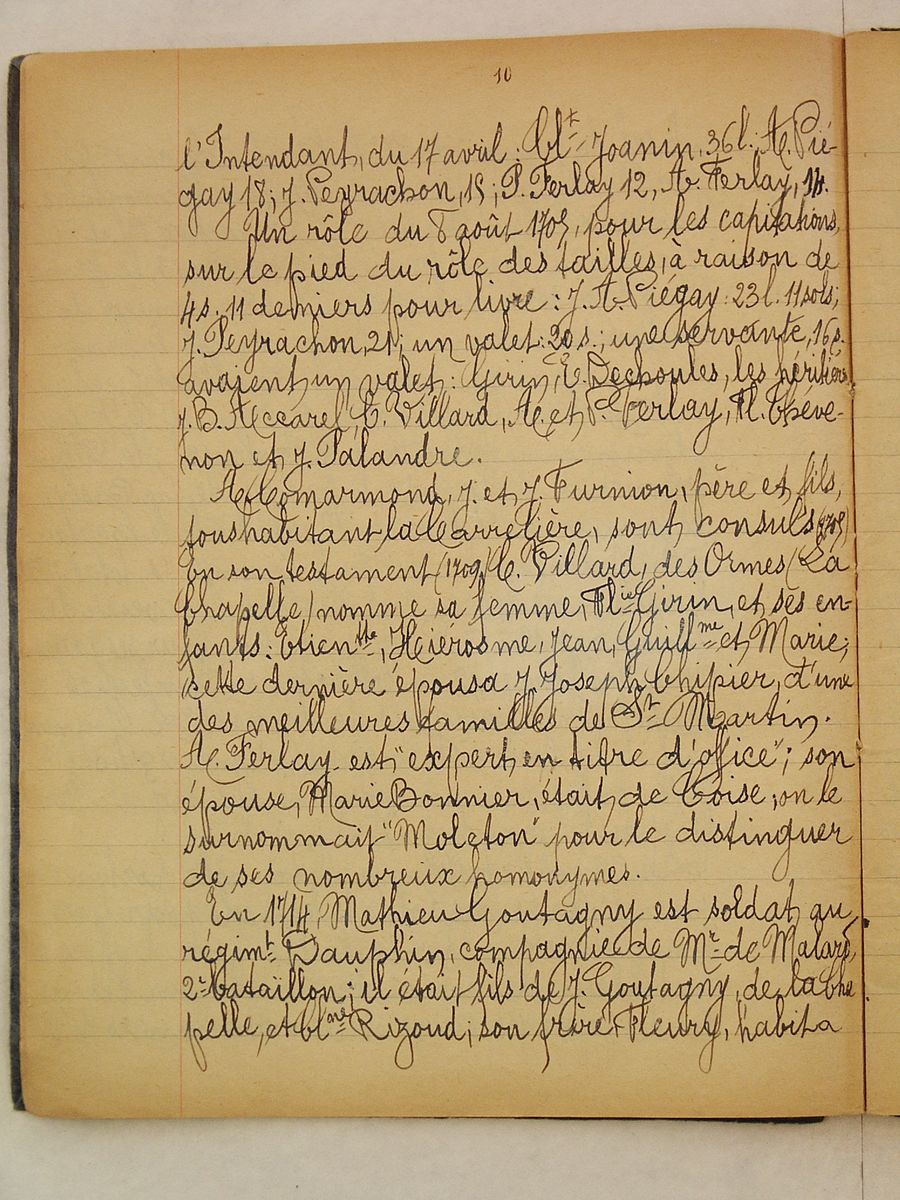 10
l'Intendant, du 17 avril : Clt Joanin, 36 l.; A. Pié-
gay 18; J. Peyrachon, 15; P. Ferlay 12, A. Ferlay, 14.
Un rôle du 8 août 1705, pour les capitations,
sur le pied du rôle des tailles, à raison de
4 s. 11 deniers pour livre : J. A. Piégay : 23 l. 11 sols;
J. Peyrachon, 21; un valet : 20 s.; une servante, 16 s.
avaient un valet : Girin, E. Dechoules, les héritiers
J. B. Accarel, C. Villard, A. et P. Ferlay, Fl. Théve-
non et J. Palandre.
A. Comarmond, J. et J. Furnion, père et fils,
tous habitant la Carrelière, sont consuls (1705)
En son testament (1709) C. Villard, des Ormes (La
Chapelle) nomme sa femme, Flie Girin, et ses en-
fants : Etiennte, Hiérosme, Jean, Guillme et Marie;
cette dernière épousa J. Joseph Chipier, d'une
des meilleures familles de St Martin.
A. Ferlay est "expert en titre d'office"; son
épouse, Marie Bonnier, était de Coise; on le
surnommait "Moleton" pour le distinguer
de ses nombreux homonymes.
En 1714, Mathieu Goutagny est soldat au
régimt Dauphin, compagnie de Mr de
2e bataillon; il était fils de J. Goutagny, de la Cha
pelle, et Clne Rizoud; son frère Fleury, habita